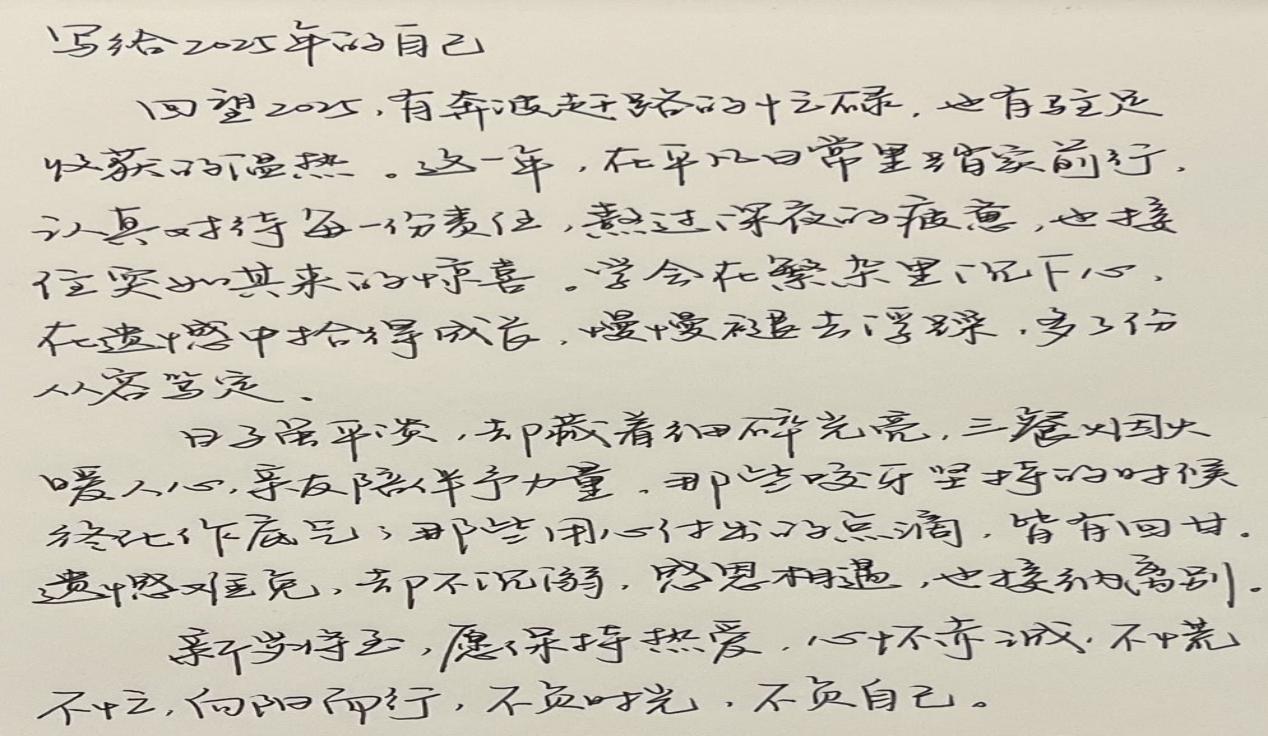 写给2025年的自己
回望2025,有奔波赶路的忙碌,也有驻足
收获的温热。这一年,在平凡日常里踏实前行,
认真对待每一份责任,熬过深夜的疲惫,也接
住突如其来的惊喜。学会在繁杂里沉下心,
在遗憾中拾得成长,慢慢褪去浮躁,多了份
从容笃定、
日子虽平淡,却藏着细碎光亮,三餐烟火
暖人心,亲友陪伴予力量,那些咬牙坚持的时候
终化作底气;那些用心付出的点滴,皆有回甘.
遗憾难免,却不沉溺,感恩相遇,也接纳离别.
新岁将至,愿保持热爱,心怀赤诚,不慌
不忙,向阳而行,不负时光,不负自己。